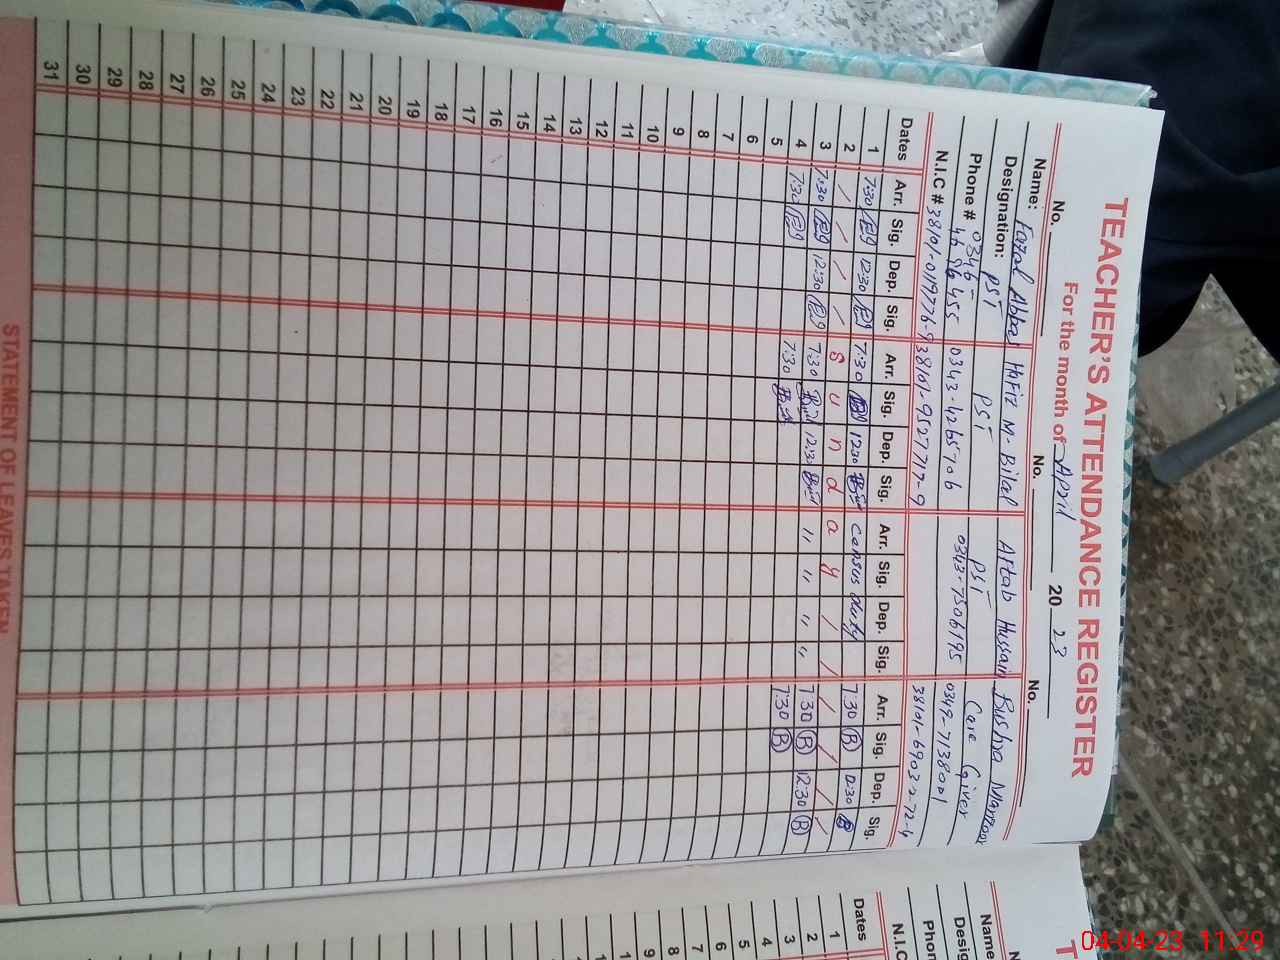 TEACHER'S ATTENDANCE REGISTER
For the month of April 2023
No. No. No.
Name: Fazal Abbas Hafiz M. Bilal Aftab Hussain Bushra Manzoor
Designation: PST PST PST Care Giver
Phone # 0346- 4686455 0343-4265706 0343-7506195 0349-7138001
N.I.C # 38101-0119776-9 38101-9527717-9 38101-6903272-4
Dates Arr. Sig. Dep. Sig. Arr. Sig. Dep. Sig. Arr. Sig. Dep. Sig. Arr. Sig. Dep. Sig.
1 7:30 12:30 7:30 12:30 Census duty 7:30 B 12:30 B
2 / / / / S u n d a y / / / / /
3 7:30 12:30 7:30 12:30 " " " " 7:30 B 12:30 B
4 7:30 7:30 7:30 B
5
6
7
8
9
10
11
12
13
14
15
16
17
18
19
20
21
22
23
24
25
26
27
28
29
30
31
STATEMENT OF LEAVES TAKEN
T
N
Name
Desig
Phon
N.I.C
Dates
1
2
3
4
5
6
7
8
9
04-04-23 11:29